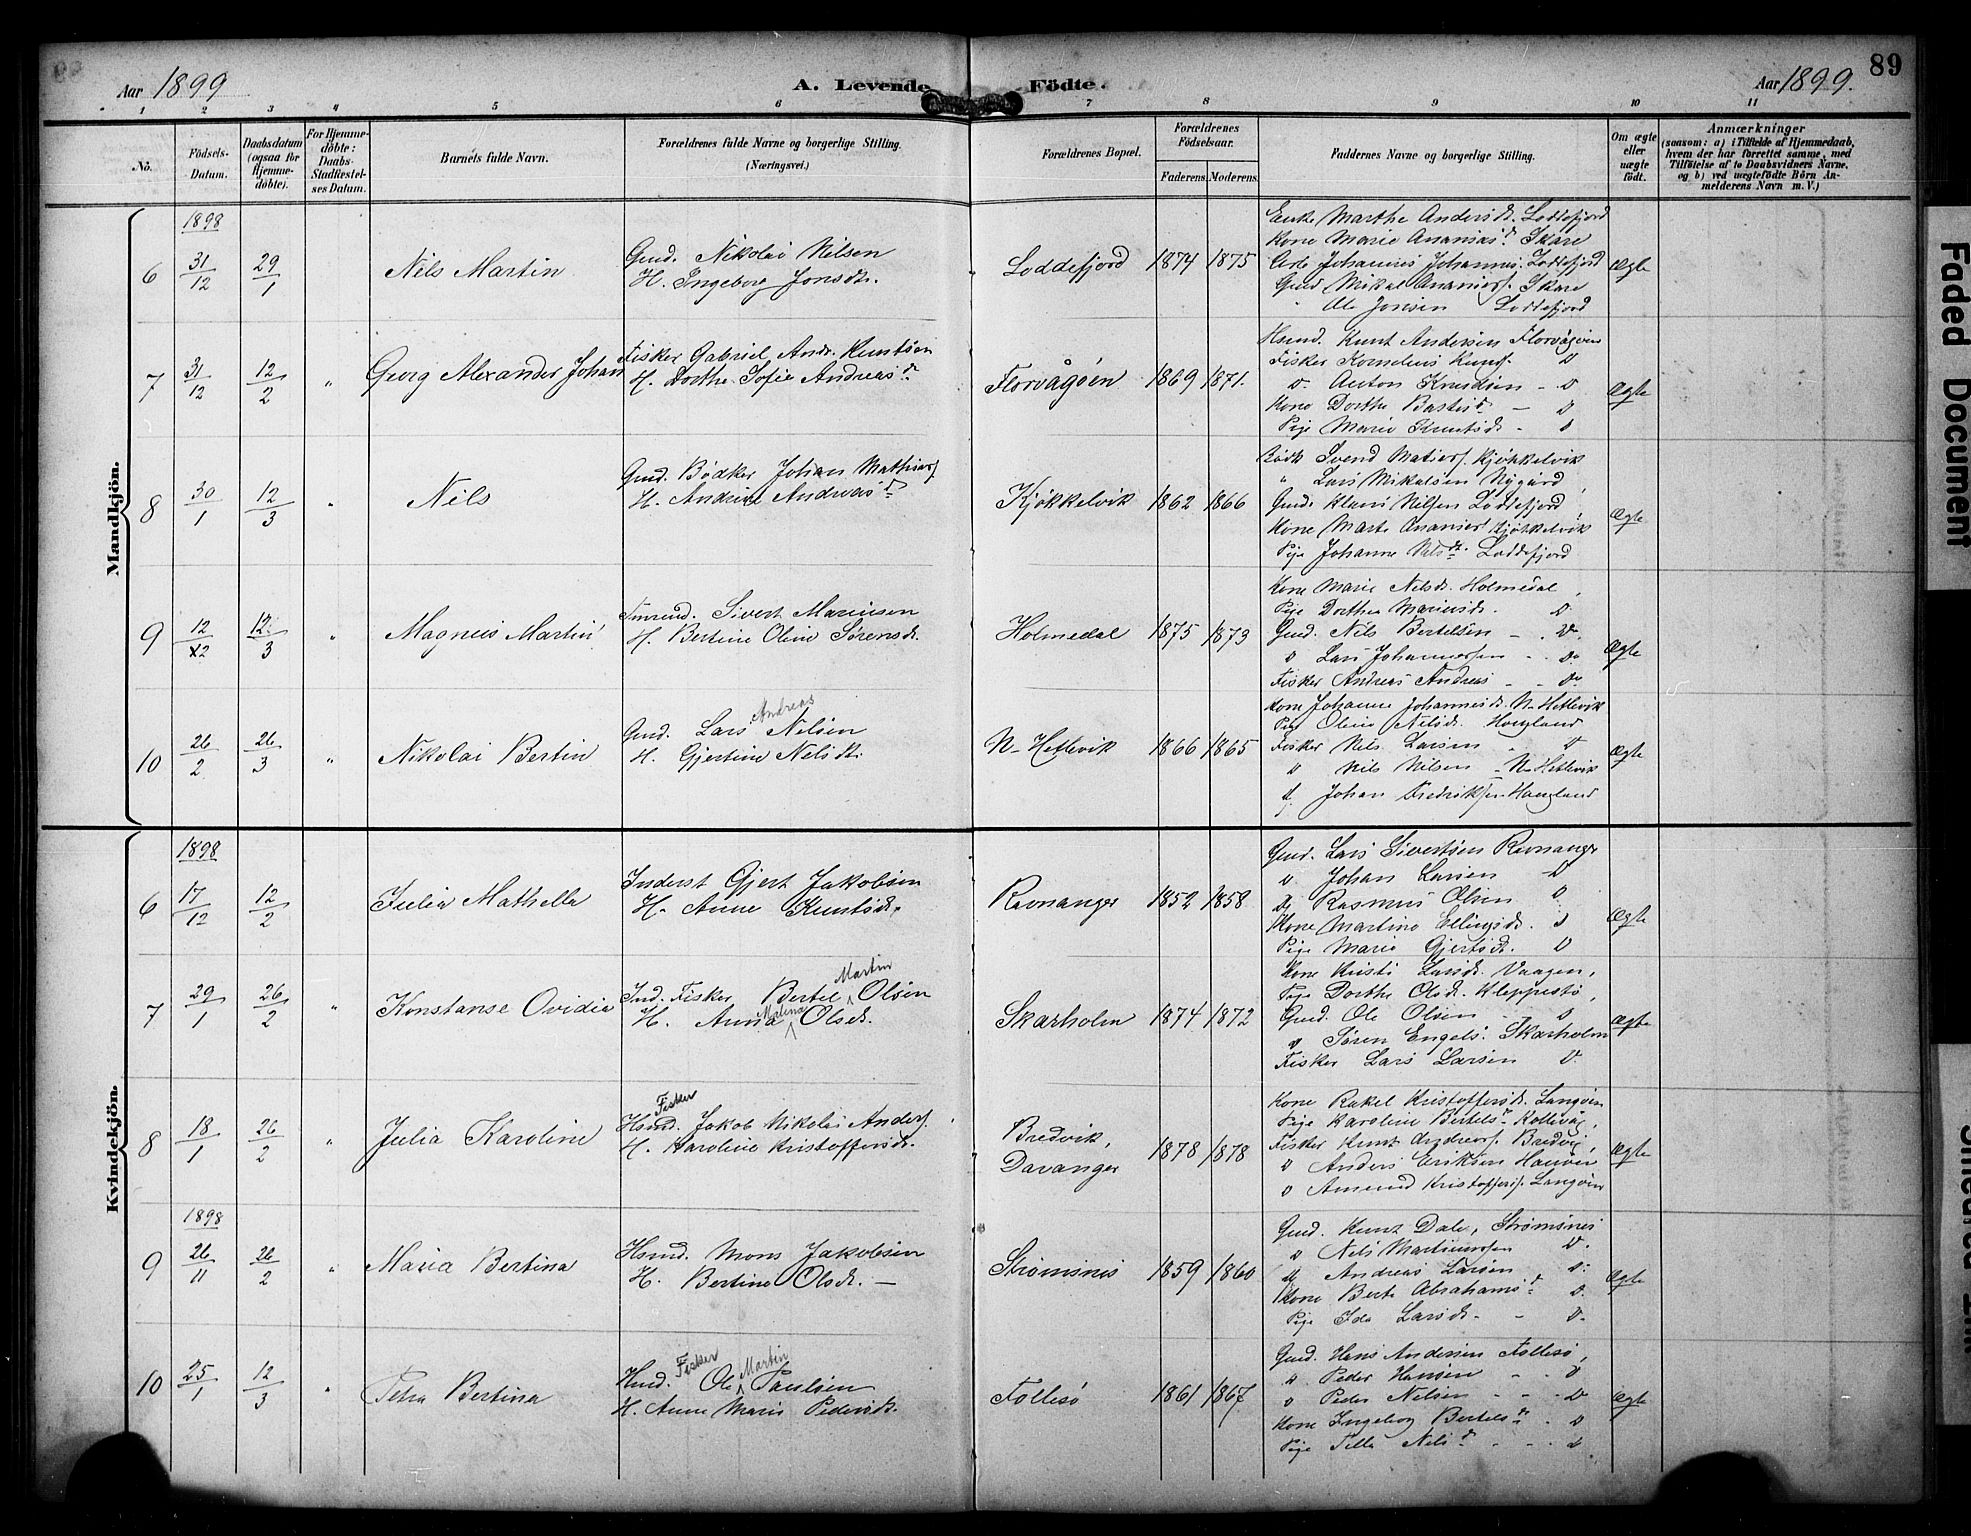 89
Aar 1899
A. Levende Födte.
Aar 1899.
1 2 3 4 5 6 7 8 9 10 11
No.
Födsels-Datum.
Daabsdatum (ogsaa for Hjemme-döbte).
For Hjemme-döbte: Daabs-Stadfæstel-ses Datum.
Barnets fulde Navn.
Forældrenes fulde Navne og borgerlige Stilling.
(Næringsvei.)
Forældrenes Bopæl.
Forældrenes Födselsaar.
Faderens. Moderens.
Faddernes Navne og borgerlige Stilling.
Om ægte eller uægte födt.
Anmærkninger
(saasom: a) i Tilfælde af Hjemmedaab, hvem der har forrettet samme, med Tilföielse af to Daabsvidners Navne, og b) ved uægtefödte Börn An-melderens Navn m. V.)
Mandkjön.
1898
6 31/12 29/1 Nils Martin
Gmd. Nikolai Nilsen
H. Ingeborg Jonsdtr.
Loddefjord 1874 1875
Enke Marthe Andersd. Loddefjord
Kone Marie Ananiasd. Skare
Johannes Johannes. Loddefjord
Gmd Mikal Ananias. Skare
Ole Jonsen Loddefjord
Ægte
7 31/12 12/2 " Georg Alexander Johan
Fisker Gabriel Andr. Knutsen
H. Dorthe Sofie Andreasd.
Florvågöen 1869 1871.
Hsmd. Knut Andersen Florvågöen
Fisker Kornelius Knuts. D
D. Anton Knudsen - D
Kone Dorthe Bastisd. - D
Pige Marie Knutsd. - D
Ægte
8 30/1 12/3 " Nils
Gmd. Bödker Johan Mathias.
H. Andrine Andreasd.
Kjökkelvik 1862 1866
Bödk Svend Matias. Kjökkelvik
" Lars Mikalsen Nygard
Gmd. Klaus Nilsen Loddefjord
Kone Marte Ananias. Kjökkelvik
Pige Johanne Nilsd. Loddefjord
Ægte
9 12/12 12/3 " Magnus Martin
Sivert Mariusen
H. Bertine Oline Sörensd.
Holmedal 1875 1873
Kone Marie Nilsd. Holmedal
Pige Dorthea Mariusd. D.
Gmd. Nils Bertelsen - D.
D Lars Johannessen - D.
Fisker Andreas Andreas - D.
Ægte
10 26/2 26/3 " Nikolai Bertin
Andreas
Gmd. Lars Nilsen
H. Gjertine Nilsdt.
N- Hetlevik 1866 1865
Kone Johanne Johannesd. N- Hetlevik
Pige Oline Nilsd. Haugland
Fisker Nils Larsen - D
D Nils Nilsen - N- Hetlevik
D. Johan Fredriksen Haugland
Ægte
Kvindekjön.
1898
6 17/12 12/2 Julia Mathella
Inderst Gjert Jakobsen
H. Anne Knutsd.
Ravnanger 1852 1858
Gmd. Lars Sivertsen Ravnanger
D Johan Larsen D
D Rasmus Olsen D
Kone Martine Ellingsd. D
Pige Marie Gjertsd. D
Ægte
7 29/1 26/2 " Konstanse Ovidia
Martin
Ind. Fisker Bertel Olsen
Malena
H. Anna Olsd.
Skarholm 1874 1872
Kone Kristi Larsd. Vaagen,
Pige Dorthe Olsd. Kleppestö,
Gmd. Ole Olsen - D
D Sören Engels. Skarholm
Fisker Lars Larsen D.
Ægte
8 18/1 26/2 " Julia Karoline
Fisker
Hsmd. Jakob Nikolai Anders.
H. Karoline Kristoffersdt.
Bredvik,
Davanger 1878 1878
Kone Rakel Kristoffersd. Langöen
Pige Karoline Bertelsd. Kollevåg,
Fisker Knut Andreas. Bredvig
D Anders Eriksen Hauöen
D Amund Kristoffers. Langöen
Ægte
1898
9 26/11 26/2 " Maria Bertina
Hsmd. Mons Jakobsen
H. Bertine Olsd. -
Strömsnes 1859 1860
Gmd. Knut Dale, Strömsnes
D Nils Martinussen D.
D Andreas Larsen D.
Kone Berte Abrahamsd. D.
Pige Ida Larsd. - D.
Ægte
10 25/1 12/3 " Petra Bertina
Fisker Martin
Hmd. Ole Paulsen
H. Anne Marie Pedersd.
Follesö 1861 1867.
Gmd. Hans Andersen Follesö,
D Peder Hansen - D
D Peder Nilsen - D
Kone Ingeborg Bertelsd. - D
Pige Tilla Nilsd. - D
Ægte
Faded Document